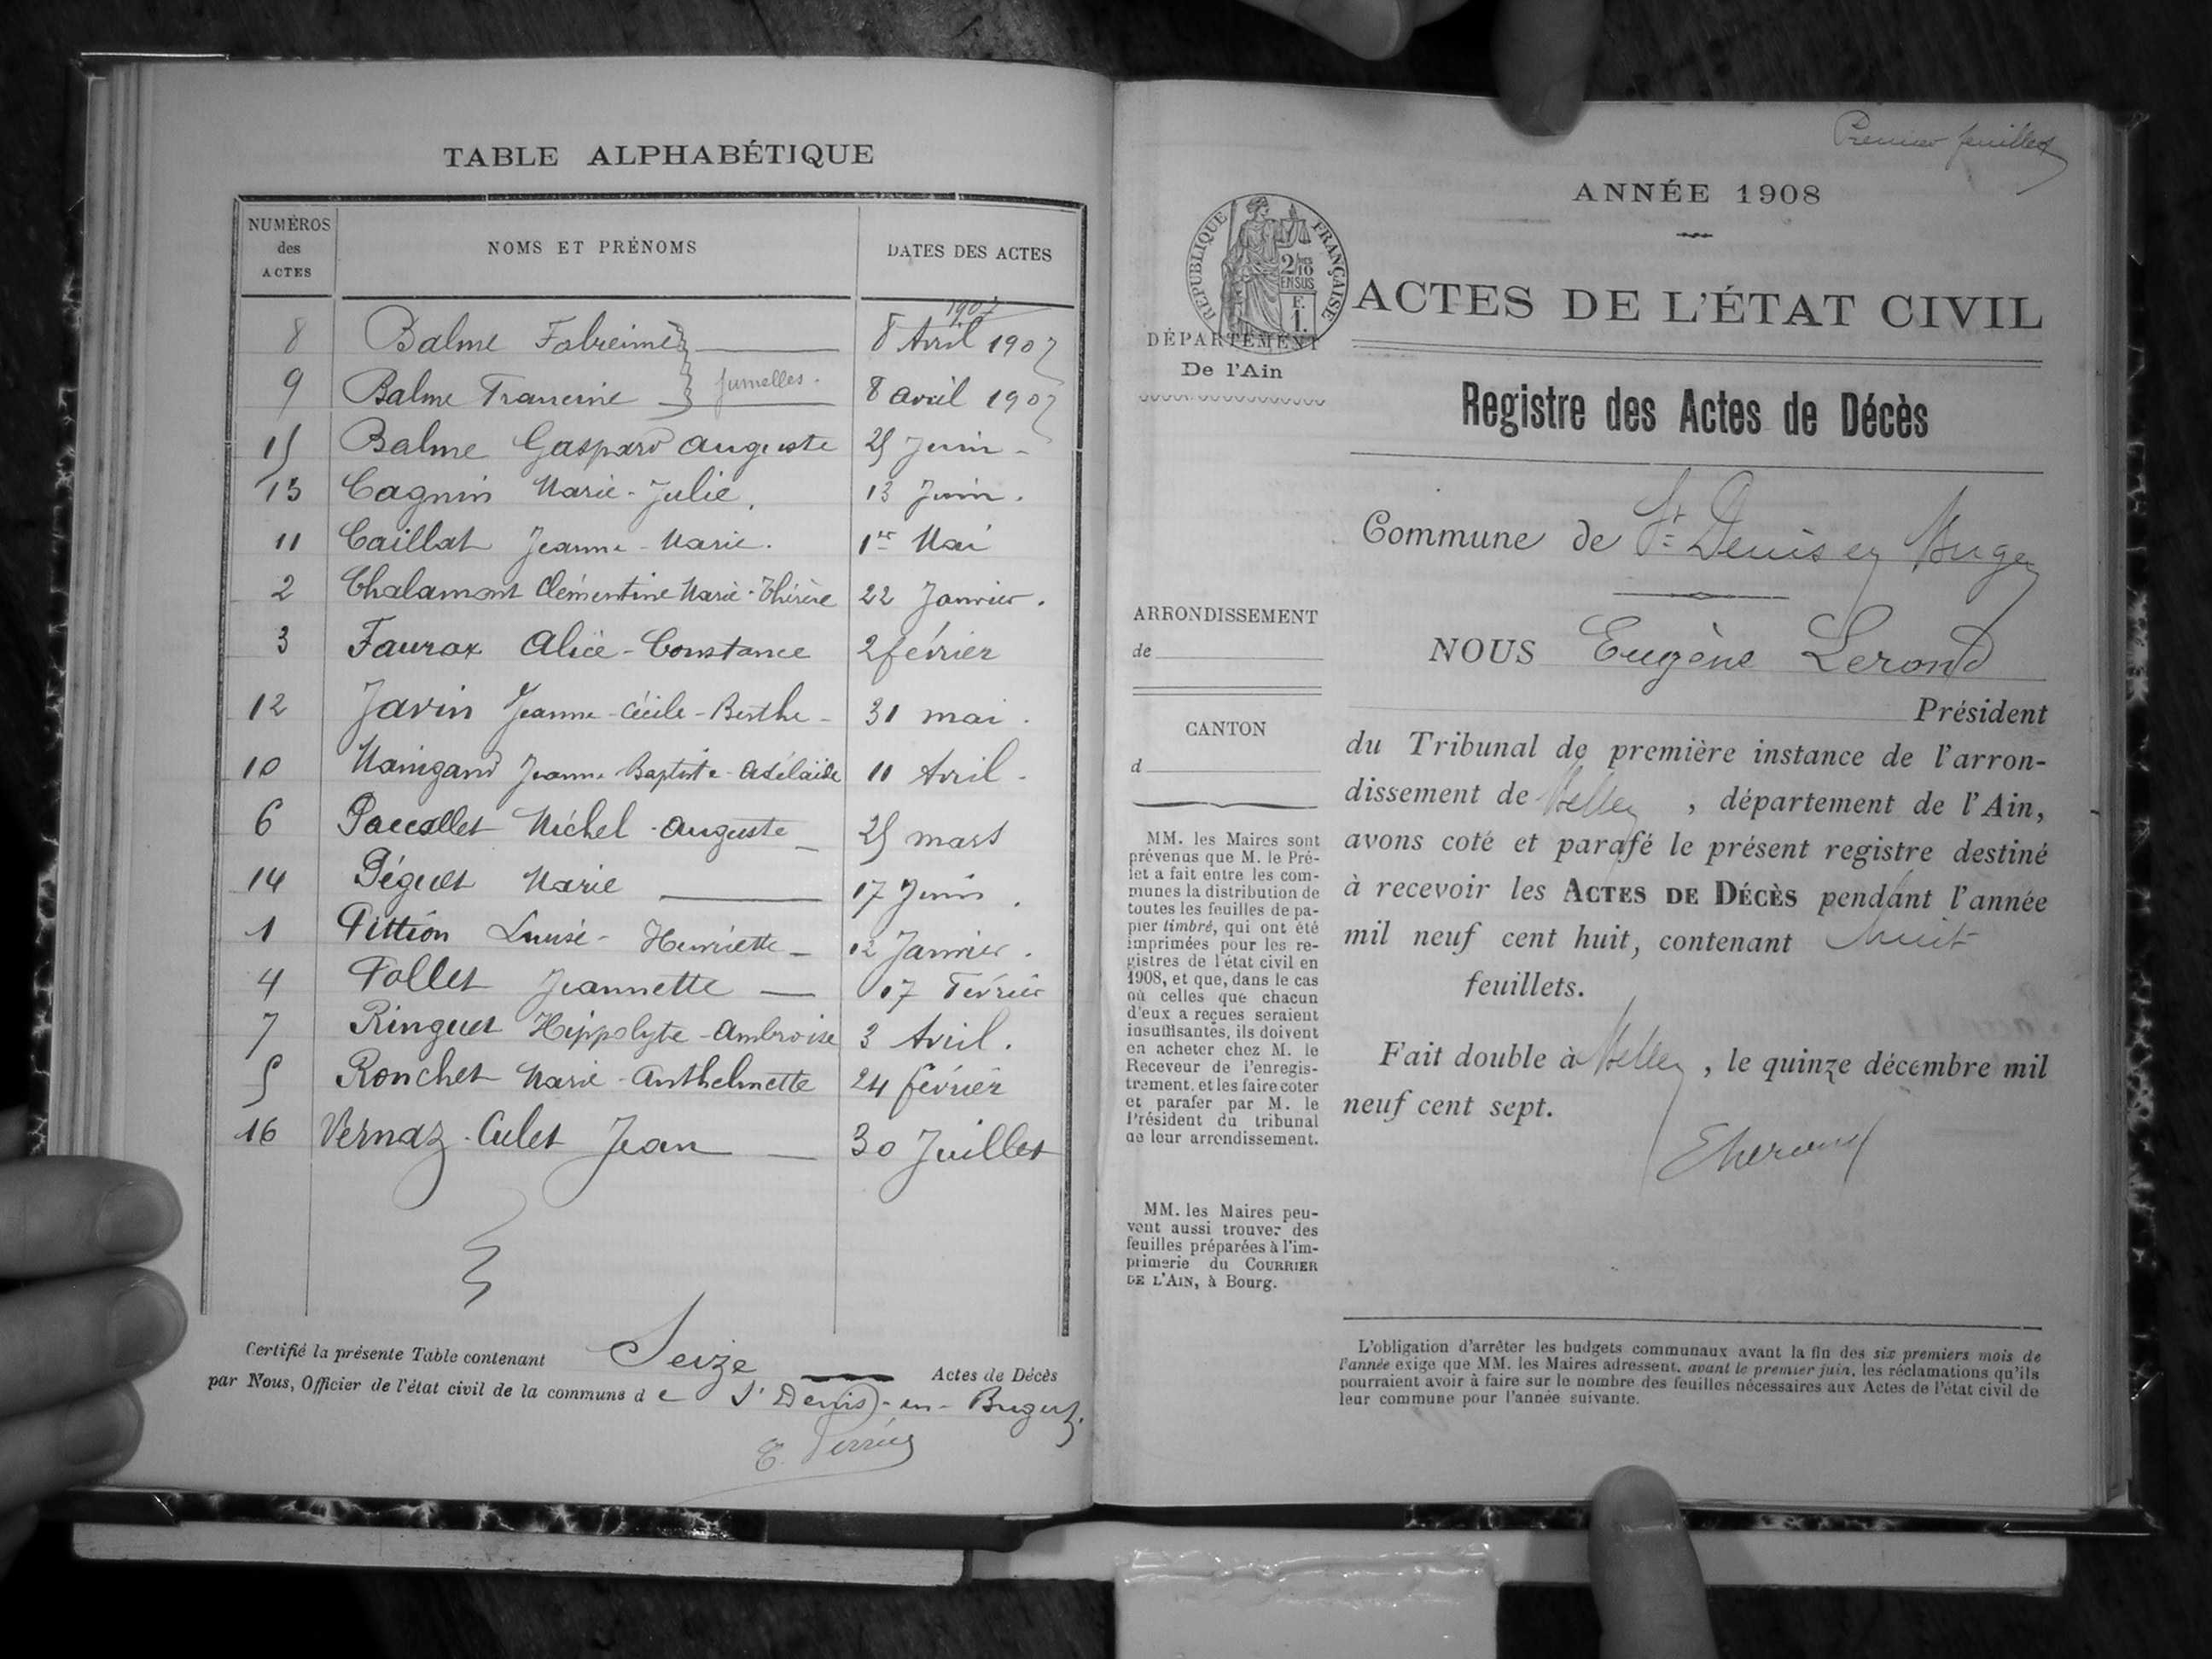 TABLE ALPHABÉTIQUE
NUMÉROS des ACTES NOMS ET PRÉNOMS DATES DES ACTES
1907
8 Balme 8 Avril 1907
9 Balme Francine jumelles. 8 avril 1907
15 Balme Gaspard Auguste 25 Juin
13 Cagnin Marie-Julie. 13 Juin.
11 Caillat Jeanne-Marie. 1er Mai
2 Chalamont Clémentine Marie-Thérèse 22 Janvier.
3 Faurax Alice-Constance 2 février
12 Javin Jeanne-Cécile-Berthe 31 mai.
10 Maingand Jeanne Baptiste-Adélaïde 11 Avril
6 Paccallet Michel-Auguste 25 mars
14 Péguet Marie 17 Juin.
1 Pittion Louise-Henriette 12 Janvier.
4 Pollet Jeannette 17 Février
7 Ringuet Hippolyte-Ambroise 3 Avril.
5 Ronchet Marie-Anthelmette 24 février
16 Vernaz-Culet Jean 30 Juillet
Certifié la présente Table contenant Seize Actes de Décès
par Nous, Officier de l'état civil de la commune de St Denis-en-Bugey.
Premier feuillet
ANNÉE 1908
RÉPUBLIQUE FRANÇAISE
2/10
EN SUS
F.
1.
ACTES DE L'ÉTAT CIVIL
DÉPARTEMENT
De l'Ain
Registre des Actes de Décès
Commune de St Denis en Bugey
ARRONDISSEMENT
de
NOUS Eugène Lerond
Président
CANTON
d
du Tribunal de première instance de l'arron-
dissement de Belley, département de l'Ain,
avons coté et parafé le présent registre destiné
à recevoir les ACTES DE DÉCÈS pendant l'année
mil neuf cent huit, contenant huit
feuillets.
Fait double à Belley, le quinze décembre mil
neuf cent sept.
MM. les Maires sont
prévenus que M. le Pré-
fet a fait entre les com-
munes la distribution de
toutes les feuilles de pa-
pier timbré, qui ont été
imprimées pour les re-
gistres de l'état civil en
1908, et que, dans le cas
où celles que chacun
d'eux a reçues seraient
insuffisantes, ils doivent
en acheter chez M. le
Receveur de l'enregis-
trement, et les faire coter
et parafer par M. le
Président du tribunal
de leur arrondissement.
MM. les Maires peu-
vent aussi trouver des
feuilles préparées à l'im-
primerie du COURRIER
DE L'AIN, à Bourg.
L'obligation d'arrêter les budgets communaux avant la fin des six premiers mois de
l'année exige que MM. les Maires adressent, avant le premier juin, les réclamations qu'ils
pourraient avoir à faire sur le nombre des feuilles nécessaires aux Actes de l'état civil de
leur commune pour l'année suivante.